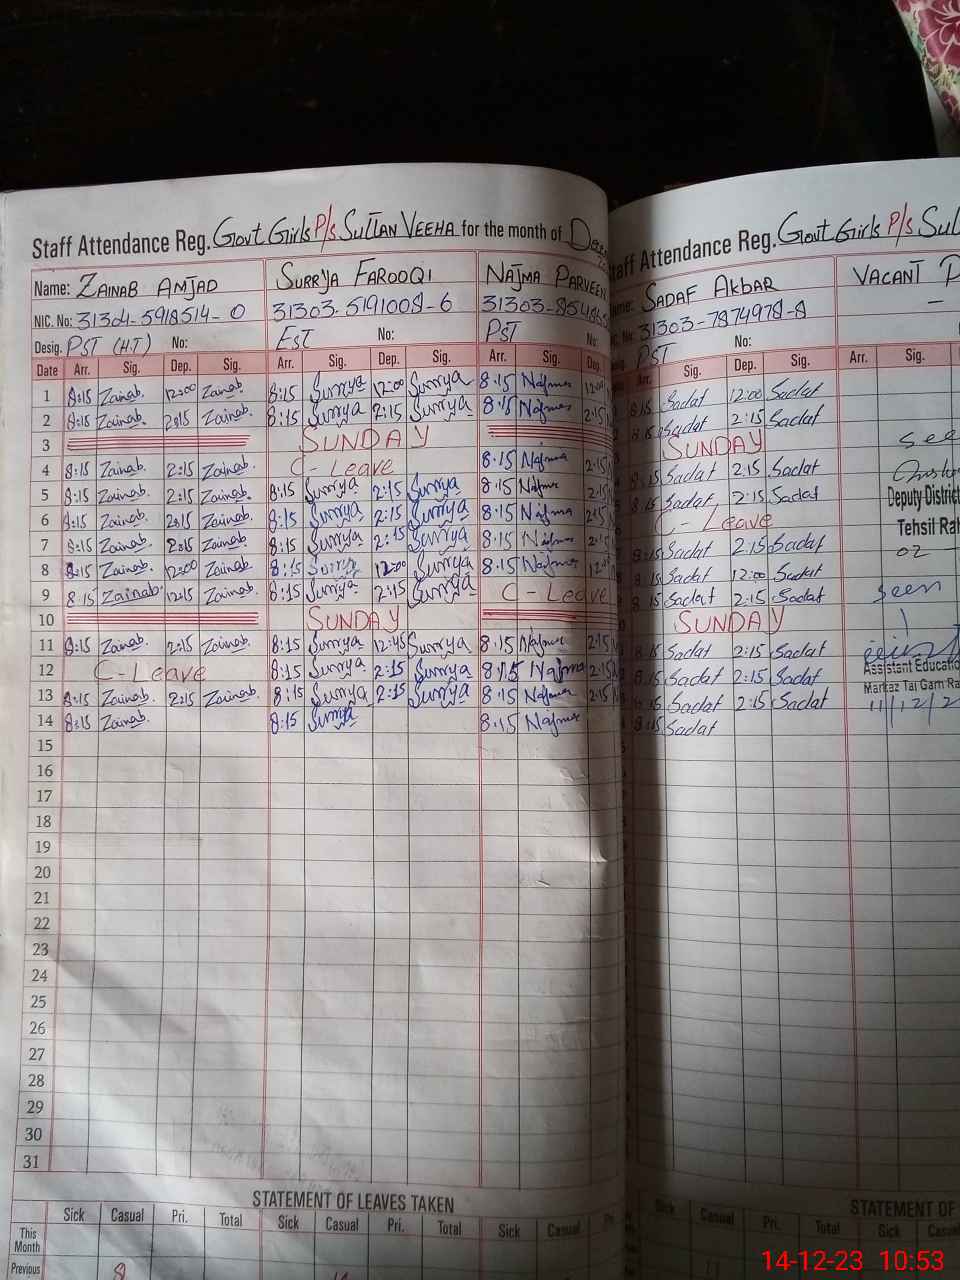 Staff Attendance Reg. Govt Girls P/s SulTAN VEEHA for the month of
Name: ZAINAB AMJAD SURRYA FAROOQI NAJMA PARVEEN
NIC. No: 31304-5918514-0 31303-5191008-6 31303-
Desig. PST (H.T) No: EST No: PST No:
Date Arr. Sig. Dep. Sig. Arr. Sig. Dep. Sig. Arr. Sig. Dep.
1 8:15 Zainab. 12:00 Zainab. 8:15 Surrya 12:00 Surrya 8.15 Najma
2 8:15 Zainab. 2:15 Zainab. 8:15 Surrya 2:15 Surrya 8.15 Najma 2:15
3 SUNDAY
4 8:15 Zainab. 2:15 Zainab. C-Leave 8.15 Najma 2:15
5 8:15 Zainab. 2:15 Zainab. 8:15 Surrya 2:15 Surrya 8.15 Najma 2:15
6 8:15 Zainab. 2:15 Zainab. 8:15 Surrya 2:15 Surrya 8.15 Najma 2:15
7 8:15 Zainab. 2:15 Zainab. 8:15 Surrya 2:15 Surrya 8.15 Najma 2:15
8 8:15 Zainab. 12:00 Zainab. 8:15 Surrya 12:00 Surrya 8.15 Najma
9 8:15 Zainab. 12:15 Zainab. 8:15 Surrya 2:15 Surrya C-Leave
10 SUNDAY
11 8:15 Zainab. 2:15 Zainab. 8:15 Surrya 12:45 Surrya 8.15 Najma 2:15
12 C-Leave 8:15 Surrya 2:15 Surrya 8.15 Najma 2:15
13 8:15 Zainab. 2:15 Zainab. 8:15 Surrya 2:15 Surrya 8.15 Najma 2:15
14 8:15 Zainab. 8:15 Surrya 8.15 Najma
15
16
17
18
19
20
21
22
23
24
25
26
27
28
29
30
31
STATEMENT OF LEAVES TAKEN
Sick Casual Pri. Total Sick Casual Pri. Total Sick Casual
This Month
Previous 8
Staff Attendance Reg. Govt Girls P/s
SADAF AKBAR VACANT
31303-7874978-8 -
PST No:
Arr. Sig. Dep. Sig. Arr. Sig.
8:15 Sadaf 12:00 Sadaf
8:15 Sadaf 2:15 Sadaf
SUNDAY See
8:15 Sadaf 2:15 Sadaf
8:15 Sadaf 2:15 Sadaf Deputy District
C-Leave Tehsil Rah
8:15 Sadaf 2:15 Sadaf 02 -
8:15 Sadaf 12:00 Sadaf
8:15 Sadaf 2:15 Sadaf Seen
SUNDAY
8:15 Sadaf 2:15 Sadaf
8:15 Sadaf 2:15 Sadaf Assistant Educatio
8:15 Sadaf 2:15 Sadaf Markaz Taj Garh Ra
8:15 Sadaf 11/12/2
STATEMENT OF
Sick Casual Pri. Total Sick Casual
14-12-23 10:53